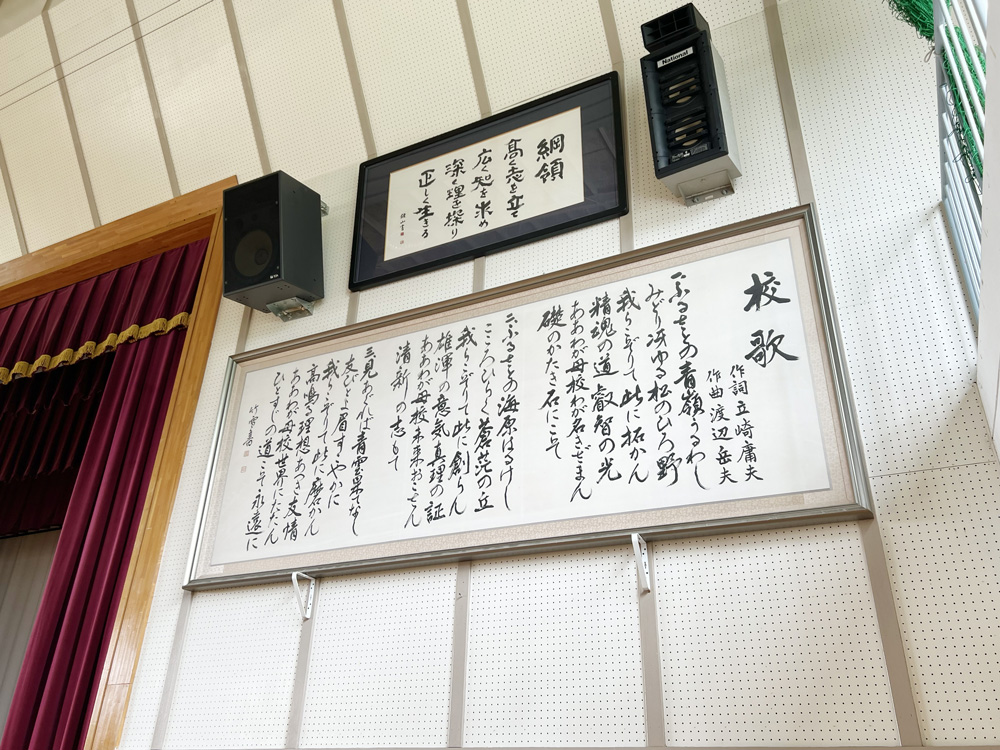 National
綱領
高く志を立て
広く知を求め
深く理を探り
正しく生きる
校歌
作詞 立崎庸夫
作曲 渡辺岳夫
一、ふるさとの青嶺うるわし
みどり冴ゆる松のひろ野
我らこぞりて此に拓かん
精魂の道 叡智の光
ああわが母校わが名きざまん
礎のかたき石にこそ
二、ふるさとの海原はるけし
こころひらく蒼茫の丘
我らこぞりて此に創らん
雄渾の意気 真理の証
ああわが母校未来おこさん
清新の志もて
三、見あぐれば青雲果てなし
友びとよ眉すこやかに
我らこぞりて此に磨かん
高鳴る理想 あつき友情
ああわが母校世界にたたん
ひとすじの道こそ永遠に